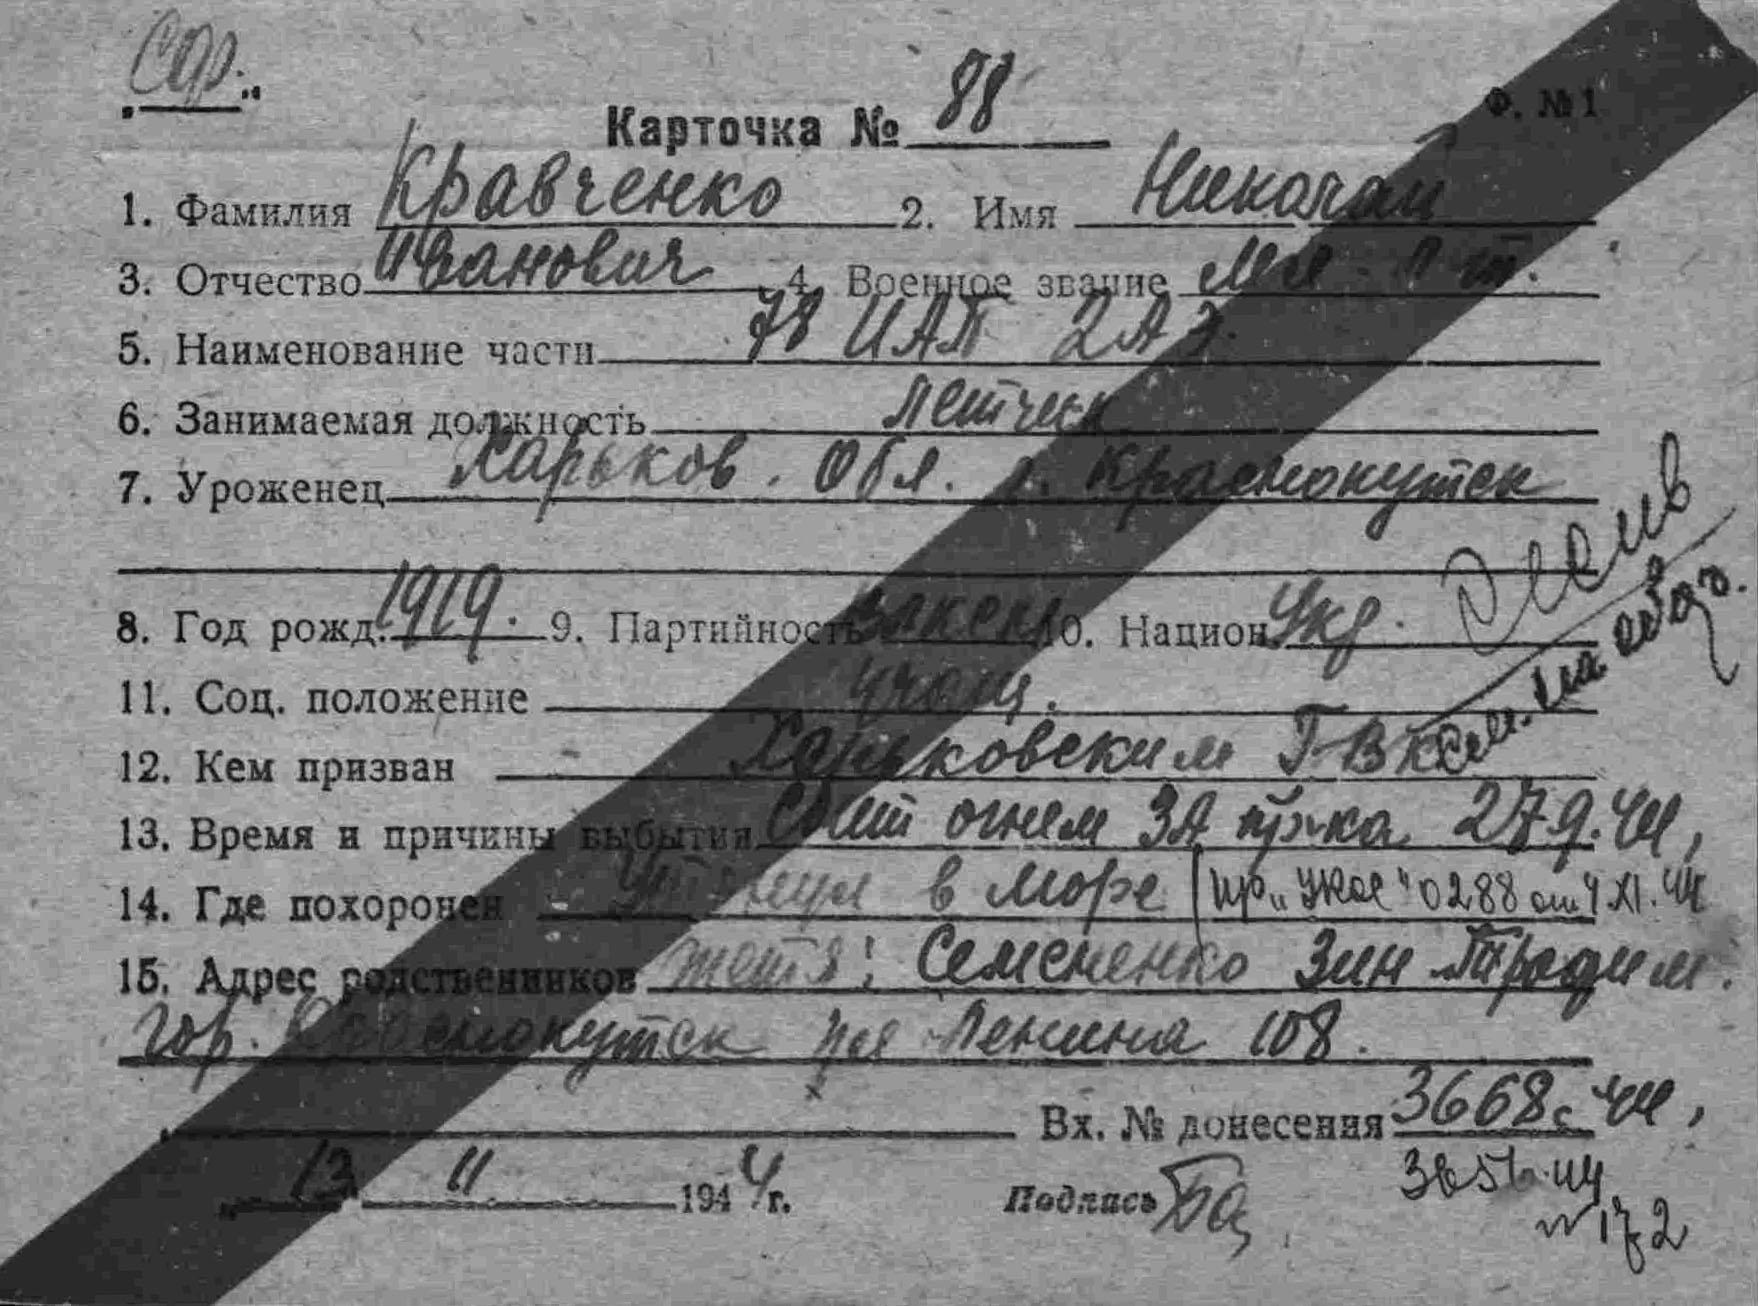 Сор.
Ф. №1
Карточка № 88
1. Фамилия Кравченко 2. Имя Николай
3. Отчество Иванович 4. Военное звание Мл. л-т.
5. Наименование части 78 ИАП 2АЭ
6. Занимаемая должность летчик
7. Уроженец Харьков. Обл. г. Краснокутск
8. Год рожд. 1919. 9. Партийность ВЛКСМ 10. Национ. Укр.
11. Соц. положение учащ.
12. Кем призван Харьковским ГВК
13. Время и причины выбытия Сбит огнем ЗА пр-ка 27 9. 44,
14. Где похоронен Утонул в море (пр. "УКОС" 0288 от 4 XI. 44
15. Адрес родственников тетя: Семененко Зин Трофим.
гор. Краснокутск ул Ленина 108.
Вх. № донесения 3668с 44,
3656 44
13 11 1944 г. Подпись
№ 172